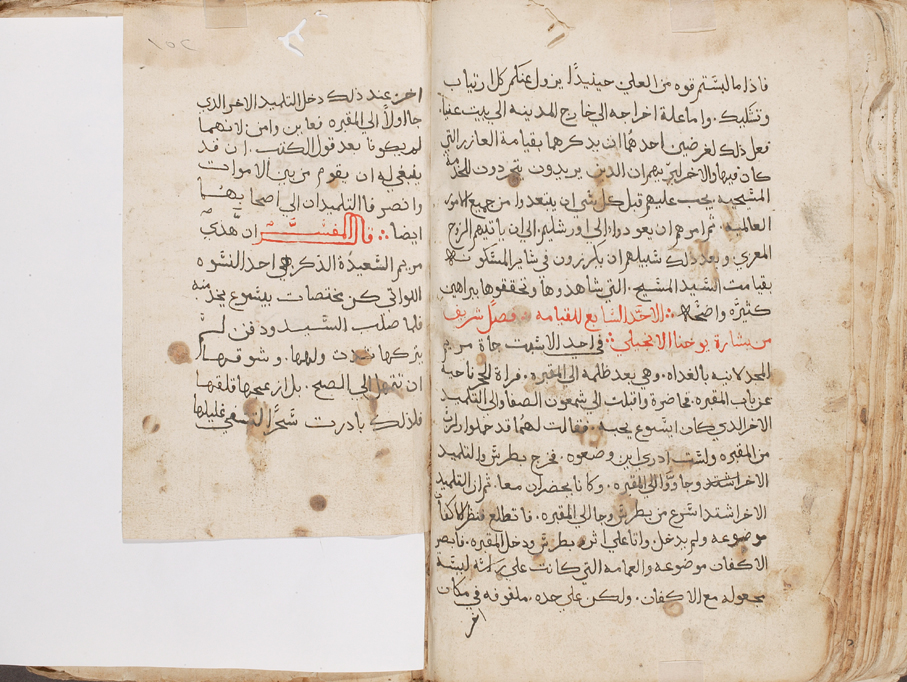 فاذا ما لبستم قوه من العلى حينيذًا يزول عنكم كل ارتياب
وتشكيك. واما علة اخراجه الي خارج المدينه الي بيت عنيا
فعل ذلك لغرضين احدهما ان يدكرها بقيامة العازر التي
كان فيها والاخر ليريهم ان الدين يريدون يتجردون للخدمة
المسيحيه يجب عليهم قبل كل شي ان يبتعدوا من جميع الامور
العالميه. ثم امرهم ان يعودوا الي اورشليم الي ان ياتيهم الروح
المعزي. وبعد ذلك سبيلهم ان يكرزون في ساير المسكونه
بقيامت السيد المسيح. التي شاهدوها وتحققوها ببراهين
كثيره واضحه الاحد السابع للقيامه فصل شريف
من بشارة يوحنا الانجيلي في احد الاسبت جاة مريم
المجدلانيه بالغداه. وهي بعد ظلمه الي المقبره. فراة الحجر ناحية
عن باب المقبره. فحاضرة واقبلت الي شمعون الصفا والي التلميد
الاخر الدي كان ايسوع يحبه. فقالت لهما قد حملوا
من المقبره ولست ادري اين وضعوه. فخرج بطرس والتلميد
الاخر وجاووا الي المقبره. وكانا يحضران معا. ثم ان التلميد
الاخر اشتدا سرع من بطرس وجا الي المقبره. فاتطلع فنظر الاكفان
موضوعه ولم يدخل. واتا على اثره بطرس ودخل المقبره. فابصر
الاكفان موضوعه والعمامه التي كانت علي راسه ليسة
مجعوله مع الاكفان. ولكن علي حده. ملفوفه في مكان
اخر
١٥٢
اخر. عند ذلك دخل التلميد الاخر الدي
جا اولاً الي المقبره فعاين وامن. لانهما
لم يكونا بعد قول الكتب. ان قد
ينبغي له ان يقوم من بين الاموات
وانصرفا التلميدان الي اصحابهما
ايضا قال المفسر ان هدي
مريم السعيدة الذكر هي احد النسوه
اللواتي كن مختصات بيسوع
فلما صلب السيد ودفن لم
يتركها ولهها. وشوقها
ان تتمهل الي الصبح. بل ازعجها قلقها
فلدلك بادرت سحرًا غليلها